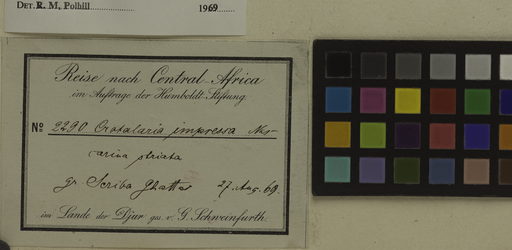 DET. R. M. Polhill 1969
Reise nach Central-Africa
im Auftrage der Humboldt-Stiftung.
No 2290 Crotalaria impressa Nees
carina striata
gr. Seriba Ghattas 27. Aug. 69.
im Lande der Djur ges. v. G. Schweinfurth.